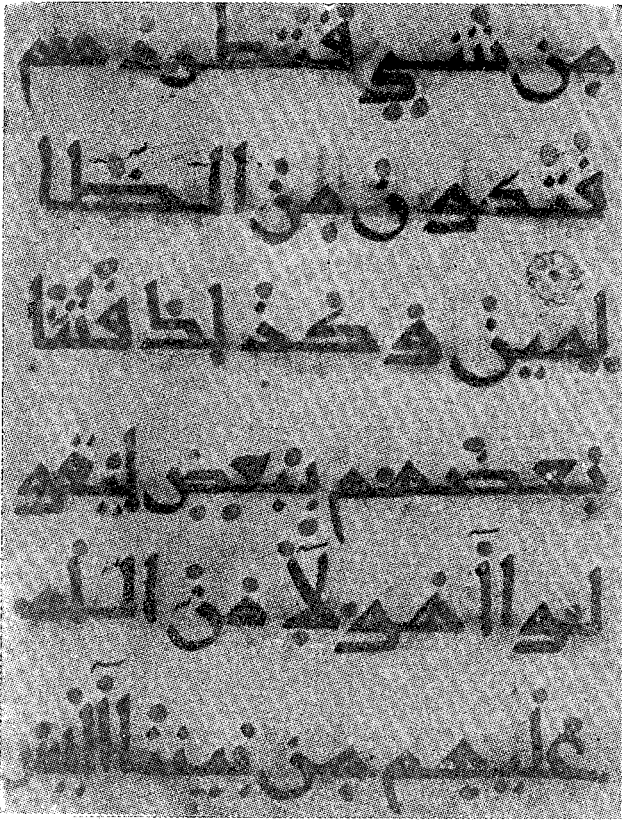 من شى فتطردهم
فتكون من الظا
لمين وكذلك فتنا
بعضهم ببعض ليقو
لوا اهولا من الله
عليهم من بيننا اليس